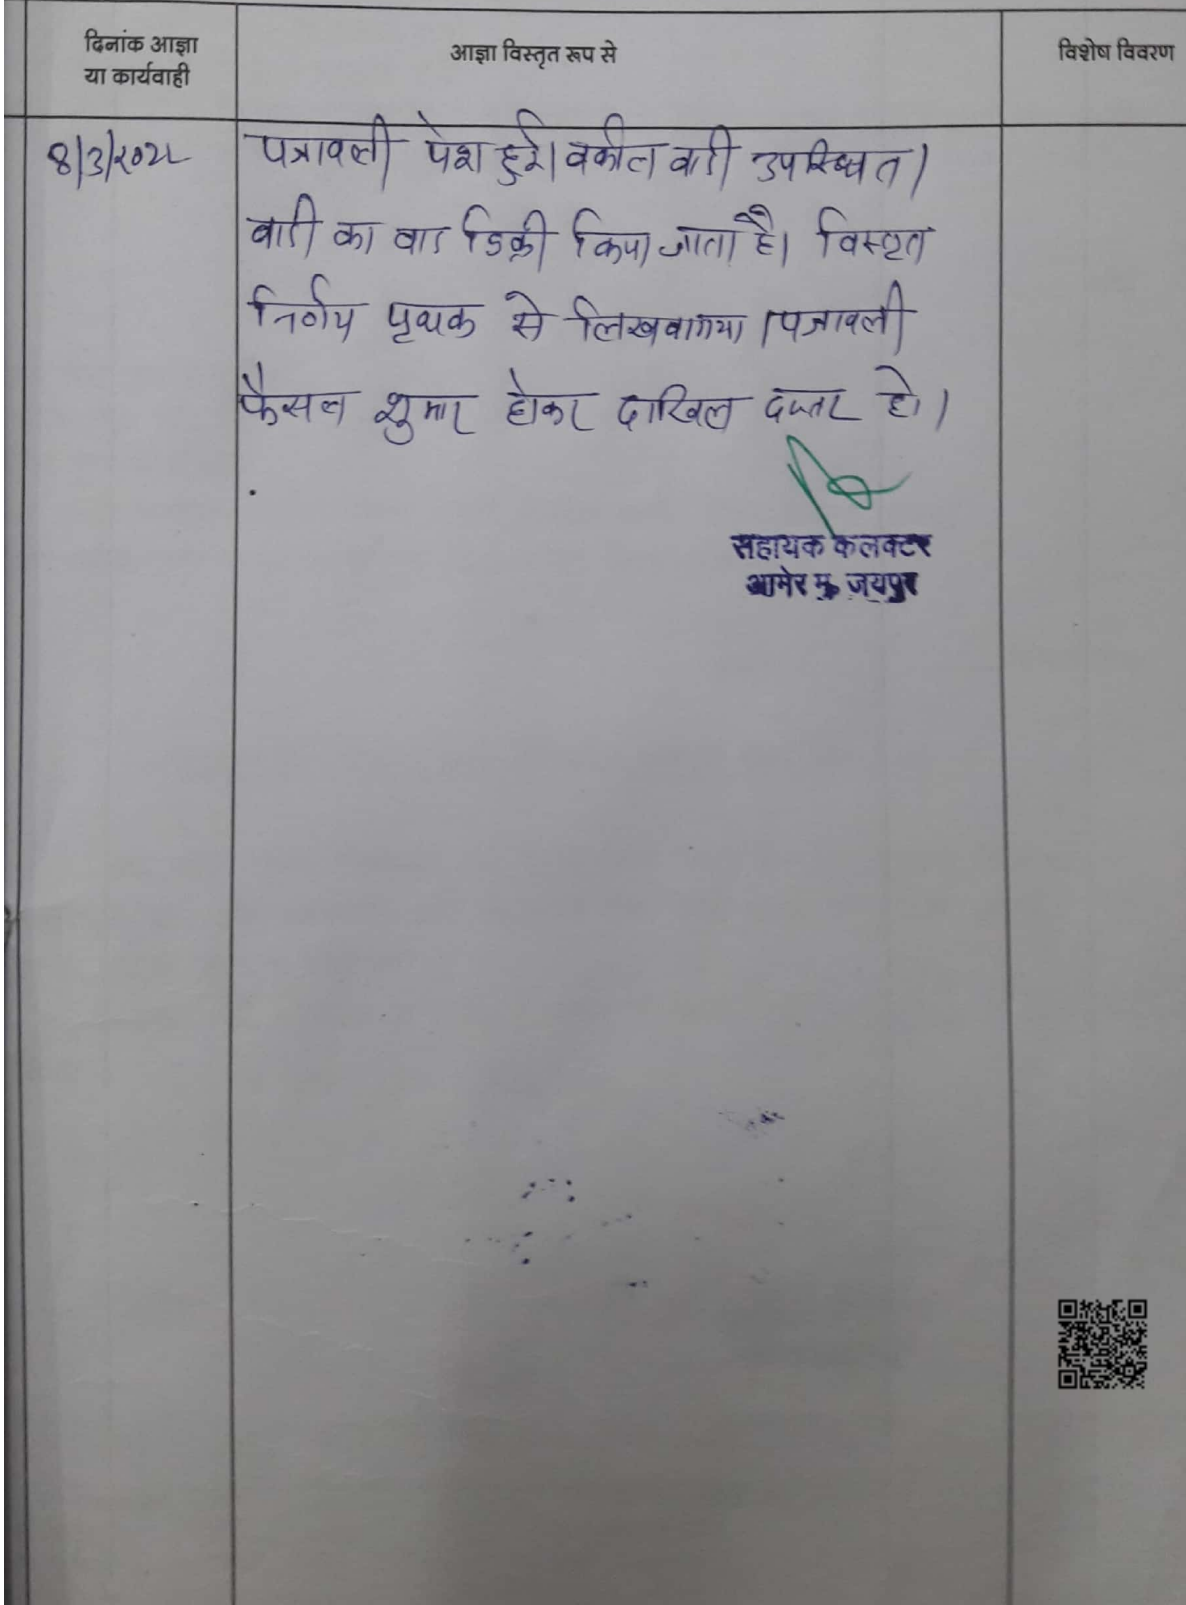 दिनांक आज्ञा
या कार्यवाही
आज्ञा विस्तृत रूप से
विशेष विवरण
8/3/2022
पत्रावली पेश हुई। वकील वादी उपस्थित।
वादी का वाद डिक्री किया जाता है। विस्तृत
निर्णय पृथक से लिखवाया गया। पत्रावली
फैसल शुमार होकर दाखिल दफ्तर हो।
सहायक कलक्टर
आमेर मु. जयपुर